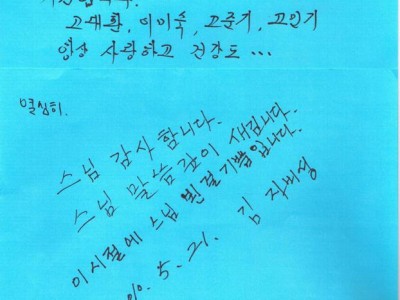 고대환, 이미숙, 고준기, 고인기
항상 사랑하고 건강도 ...
열심히.
스님 감사합니다.
스님 말씀 깊이 새깁니다.
이 시절에 스님 뵌걸 기쁨입니다.
5. 21. 김